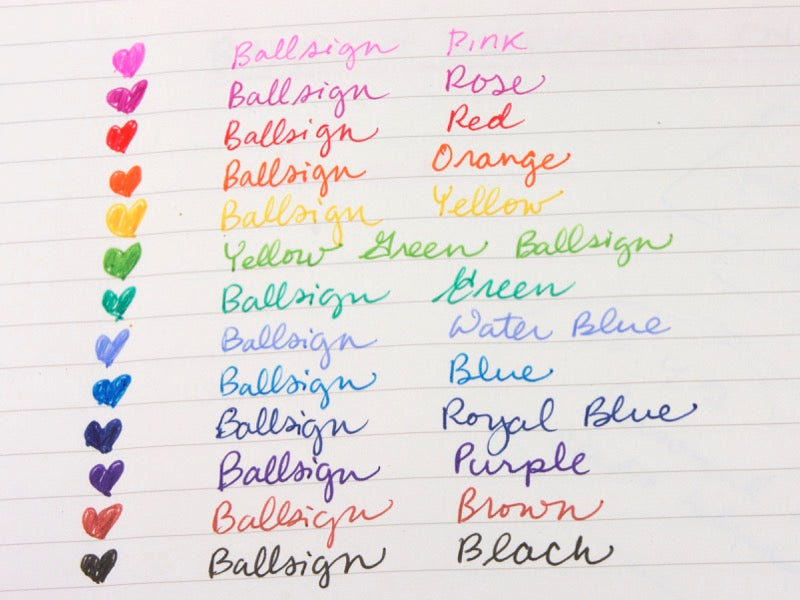 Ballsign Pink
Ballsign Rose
Ballsign Red
Ballsign Orange
Ballsign Yellow
Yellow Green Ballsign
Ballsign Green
Ballsign Water Blue
Ballsign Blue
Ballsign Royal Blue
Ballsign Purple
Ballsign Brown
Ballsign Black